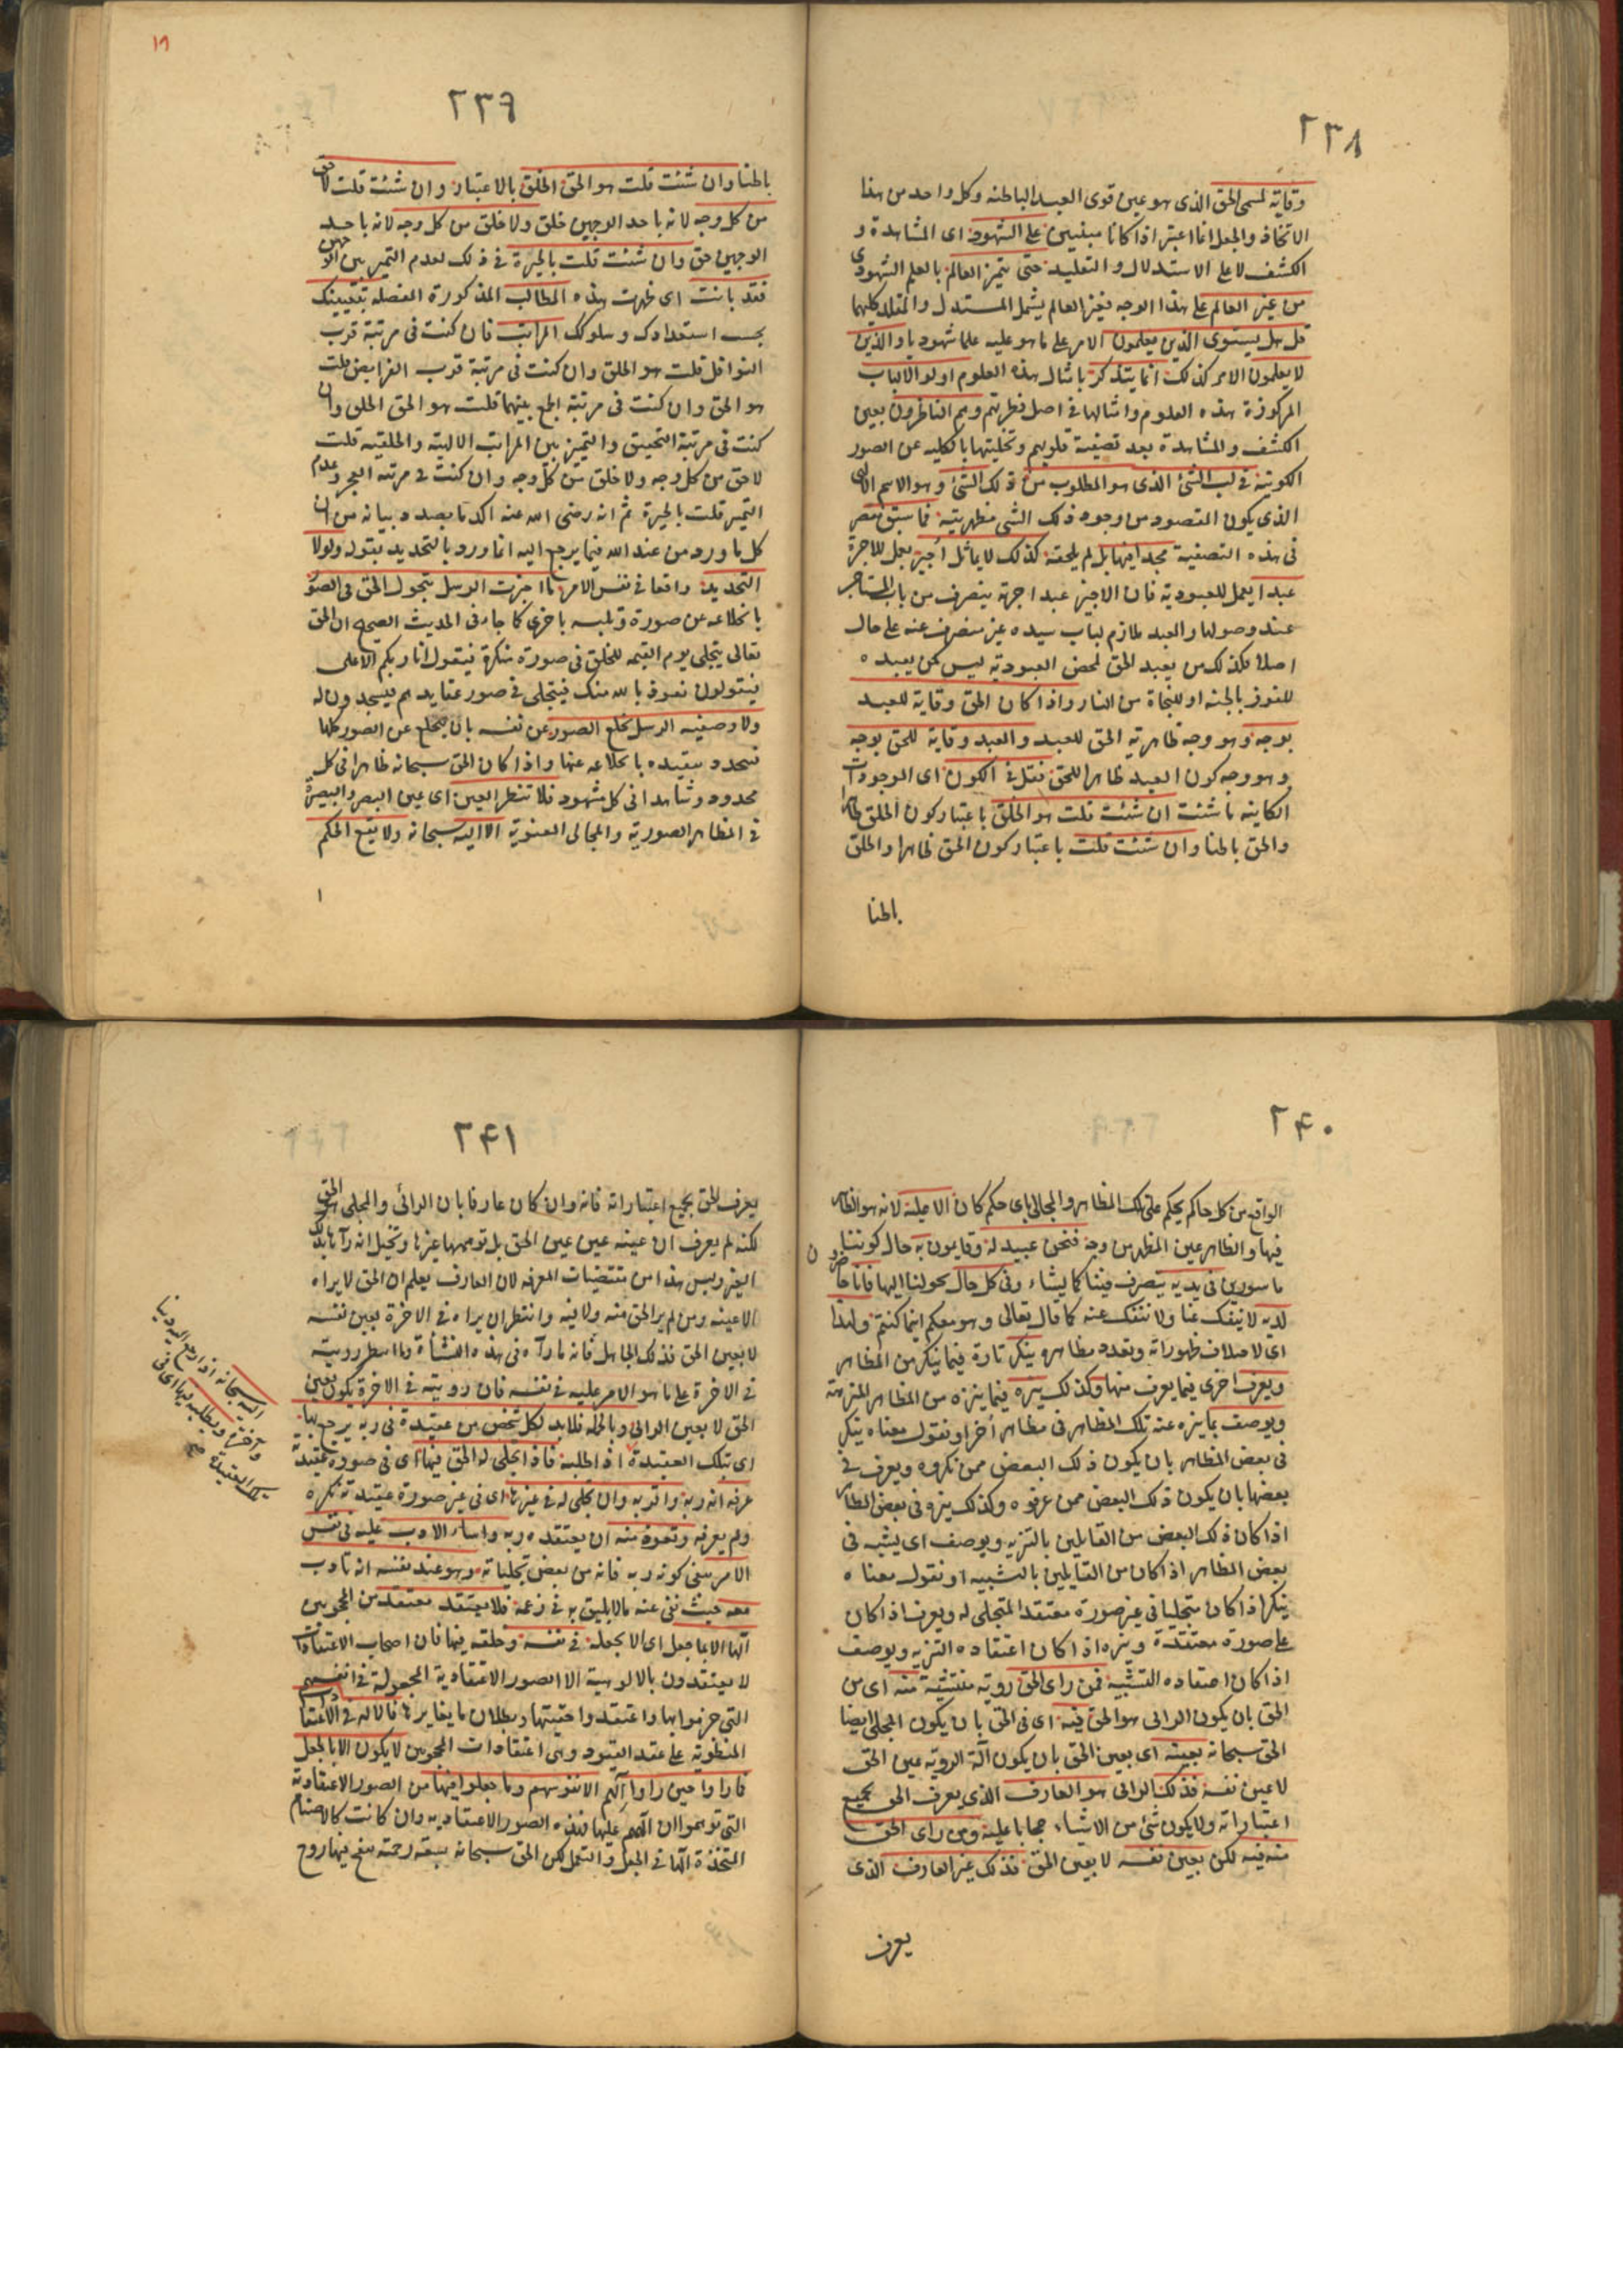 ٢٣٨
وقاية لمسمى الحق الذى هو عين قوى العبد الباطنة وكل واحد من هذا
الاتخاذ والجعل انما اعتبر اذا كانا مبنيين على الشهود اى المشاهدة و
الكشف لا على الاستدلال والتقليد حتى يتميز العالم بالعلم الشهودى
من غير العالم على هذا الوجه فغير العالم يشمل المستدل والمقلد كليهما
قل هل يستوى الذين يعلمون الامر على ما هو عليه علما شهوديا والذين
لا يعلمون الامر كذلك انما يتذكر بامثال هذه العلوم اولو الالباب
المركوزة هذه العلوم وامثالها فى اصل فطرتهم وهم الناظرون بعين
الكشف والمشاهدة بعد تصفية قلوبهم وتخليتها بالكلية عن الصور
الكونية فى لب الشئ الذى هو المطلوب من ذلك الشئ وهو الاسم الالهى
الذى يكون المقصود من وجود ذلك الشى مظهريته فما سبق مقصر
فى هذه التصفية مجدا فيها بل لم يلحقه كذلك لا يماثل أجير يعمل للاجرة
عبدا يعمل للعبودية فان الاجير عبد اجرته ينصرف من باب المستاجر
عند وصولها والعبد ملازم لباب سيده غير منصرف عنه على حال
اصلا فكذلك من يعبد الحق لمحض العبودية ليس كمن يعبده
للفوز بالجنة او للنجاة من النار واذا كان الحق وقاية للعبد
بوجه وهو وجه ظاهرية الحق للعبد والعبد وقاية للحق بوجه
وهو وجه كون العبد ظاهرا للحق فقل فى الكون اى الموجودات
الكاينة ما شئت ان شئت قلت هو الخلق باعتبار كون الخلق ظاهرا
والحق باطنا وان شئت قلت باعتبار كون الحق ظاهرا والخلق
باطنا
١٩
٢٣٩
باطنا وان شئت قلت هو الحق الخلق بالاعتبار وان شئت قلت لا حق
من كل وجه لانه باحد الوجهين خلق ولا خلق من كل وجه لانه باحد
الوجهين حق وان شئت قلت بالحيرة فى ذلك لعدم التميز بين الوجهين
فقد بانت اى ظهرت هذه المطالب المذكورة المفصلة بتعيينك
بحسب استعدادك وسلوكك المراتب فان كنت فى مرتبة قرب
النوافل قلت هو الخلق وان كنت فى مرتبة قرب الفرايض قلت
هو الحق وان كنت فى مرتبة الجمع بينهما قلت هو الحق الخلق وان
كنت فى مرتبة التحقيق والتميز بين المراتب الالهية والخلقية قلت
لا حق من كل وجه ولا خلق من كل وجه وان كنت فى مرتبة العجز وعدم
التميز قلت بالحيرة ثم انه رضى الله عنه اكد ما بصدد بيانه من ان
كل ما ورد من عند الله فيما يرجع اليه انما ورد بالتحديد بقوله ولولا
التحديد واقعا فى نفس الامر ما اخبرت الرسل بتحول الحق فى الصور
بانخلاعه عن صورة وتلبسه باخرى كما جاء فى الحديث الصحيح ان الحق
تعالى يتجلى يوم القيمة للخلق فى صورة منكرة فيقول انا ربكم الاعلى
فيقولون نعوذ بالله منك فيتجلى فى صور عقايدهم فيسجدون له
ولا وصفته الرسل بخلع الصور عن نفسه بان يخلع عن الصور كلها
فتحدد بتقيده بانخلاعه عنها واذا كان الحق سبحانه ظاهرا فى كل
محدود وشاهدا فى كل مشهود فلا تنظر العين اى عين البصر والبصيرة
فى المظاهر الصورية والمجالى المعنوية الا اليه سبحانه ولا يقع الحكم
ا
٢۴٠
الواقع من كل حاكم يحكم على تلك المظاهر والمجالى باى حكم كان الا عليه لانه هو الظاهر
فيها والظاهر عين المظهر من وجه فنحن عبيد له وقايمون به حال كوننا
ماسورين فى يديه يتصرف فينا كما يشاء وفى كل حال يحولنا اليها فانا حاضرون
لديه لا ينفك عنا ولا ننفك عنه كما قال تعالى وهو معكم اينما كنتم ولهذا
اى لاختلاف ظهوراته وتعدد مظاهره ينكر تارة فيما ينكر من المظاهر
ويعرف اخرى فيما يعرف منها وكذلك ينزه فيما ينزه من المظاهر المنزهة
ويوصف بما ينزه عنه تلك المظاهر فى مظاهر أخر او نقول معناه ينكر
فى بعض المظاهر بان يكون ذلك البعض ممن نكروه ويعرف فى
بعضها بان يكون ذلك البعض ممن عرفوه وكذلك ينزه فى بعض المظاهر
اذا كان ذلك البعض من القايلين بالتنزيه ويوصف اى يشبه فى
بعض المظاهر اذا كان من القايلين بالتشبيه او نقول معناه
ينكر اذا كان متجليا فى غير صورة معتقد المتجلى له ويعرف اذا كان
على صورة معتقده وينزه اذا كان اعتقاده التنزيه ويوصف
اذا كان اعتقاده التشبيه فمن راى الحق روية منتشئة منه اى من
الحق بان يكون الرائى هو الحق فيه اى فى الحق بان يكون المجلى ايضا
الحق سبحانه بعينه اى بعين الحق بان يكون آلة الرويه عين الحق
لا عين نفسه فذلك الرائى هو العارف الذى يعرف الحق بجميع
اعتباراته ولا يكون شئ من الاشياء حجابا عليه ومن راى الحق
منه فيه لكن بعين نفسه لا بعين الحق فذلك غير العارف الذى
يعرف
٢۴١
يعرف الحق بجميع اعتباراته فانه وان كان عارفا بان الرائى والمجلى هو الحق
لكنه لم يعرف ان عينه عين عين الحق بل توهمها غيرها وتخيل انه رآه بذلك
الغير وليس هذا من مقتضيات المعرفة لان العارف يعلم ان الحق لا يراه
الا عينه ومن لم ير الحق منه ولا فيه وانتظر ان يراه فى الاخرة بعين نفسه
لا بعين الحق فذلك الجاهل فانه ما رآه فى هذه النشأة وما انتظر رويته
فى الاخرة على ما هو الامر عليه فى نفسه فان رويته فى الاخرة يكون بعين
الحق لا بعين الرائى وبالجملة فلابد لكل شخص من عقيدة فى ربه يرجع بها
اى بتلك العقيدة اذا طلبه فاذا تجلى له الحق فيها اى فى صورة عقيدته
عرفه انه ربه واقر به وان تجلى له فى غيرها اى فى غير صورة عقيدته نكره
ولم يعرفه وتعوذ منه ان يعتقده ربه واساء الادب عليه فى نفس
الامر بنفى كونه ربه فانه من بعض تجلياته وهو عند نفسه انه تادب
معه حيث نفى عنه ما لا يليق به فى زعمه فلا يعتقد معتقد من المحجوبين
الها الا بما جعل اى الا بجعله فى نفسه وخلقه فيها فان اصحاب الاعتقادات
لا يعتقدون بالالوهية الا الصور الاعتقادية المجعولة فى انفسهم
التى جزموا بها واعتقد واحقيتها وبطلان ما يغايرها فالاله فى الاعتقادات
المنطوية على عقد القيود وهى اعتقادات المحجوبين لا يكون الا بالجعل
فما راوا حين راوا آلههم الا نفوسهم وما جعلوا فيها من الصور الاعتقادية
التى توهموا ان آلههم عليها فهذه الصور الاعتقادية وان كانت كالاصنام
المتخذة آلها فى الجعل والتعمل لكن الحق سبحانه بسعة رحمته نفخ فيها روح
اليه سبحانه اذا رجع اليه دنيا
وآخرة ويطلبه فيها اى فى
تلك العقيدة صح